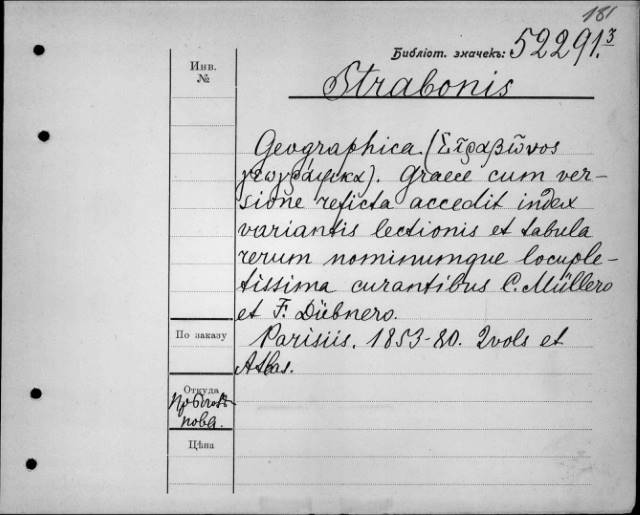 181
Библіот. значекъ: 52291.3
Инв.
№
Strabonis
Geographica. (Στραβῶνος
γεωγράφικα). Graece cum ver-
sione reficta accedit index
variantis lectionis et tabula
rerum nominumque locuple-
tissima curantibus C. Müllero
et F. Dübnero.
По заказу
Parisiis. 1853-80. 2 vols et
Atlas.
Откуда
нова.
Цѣна